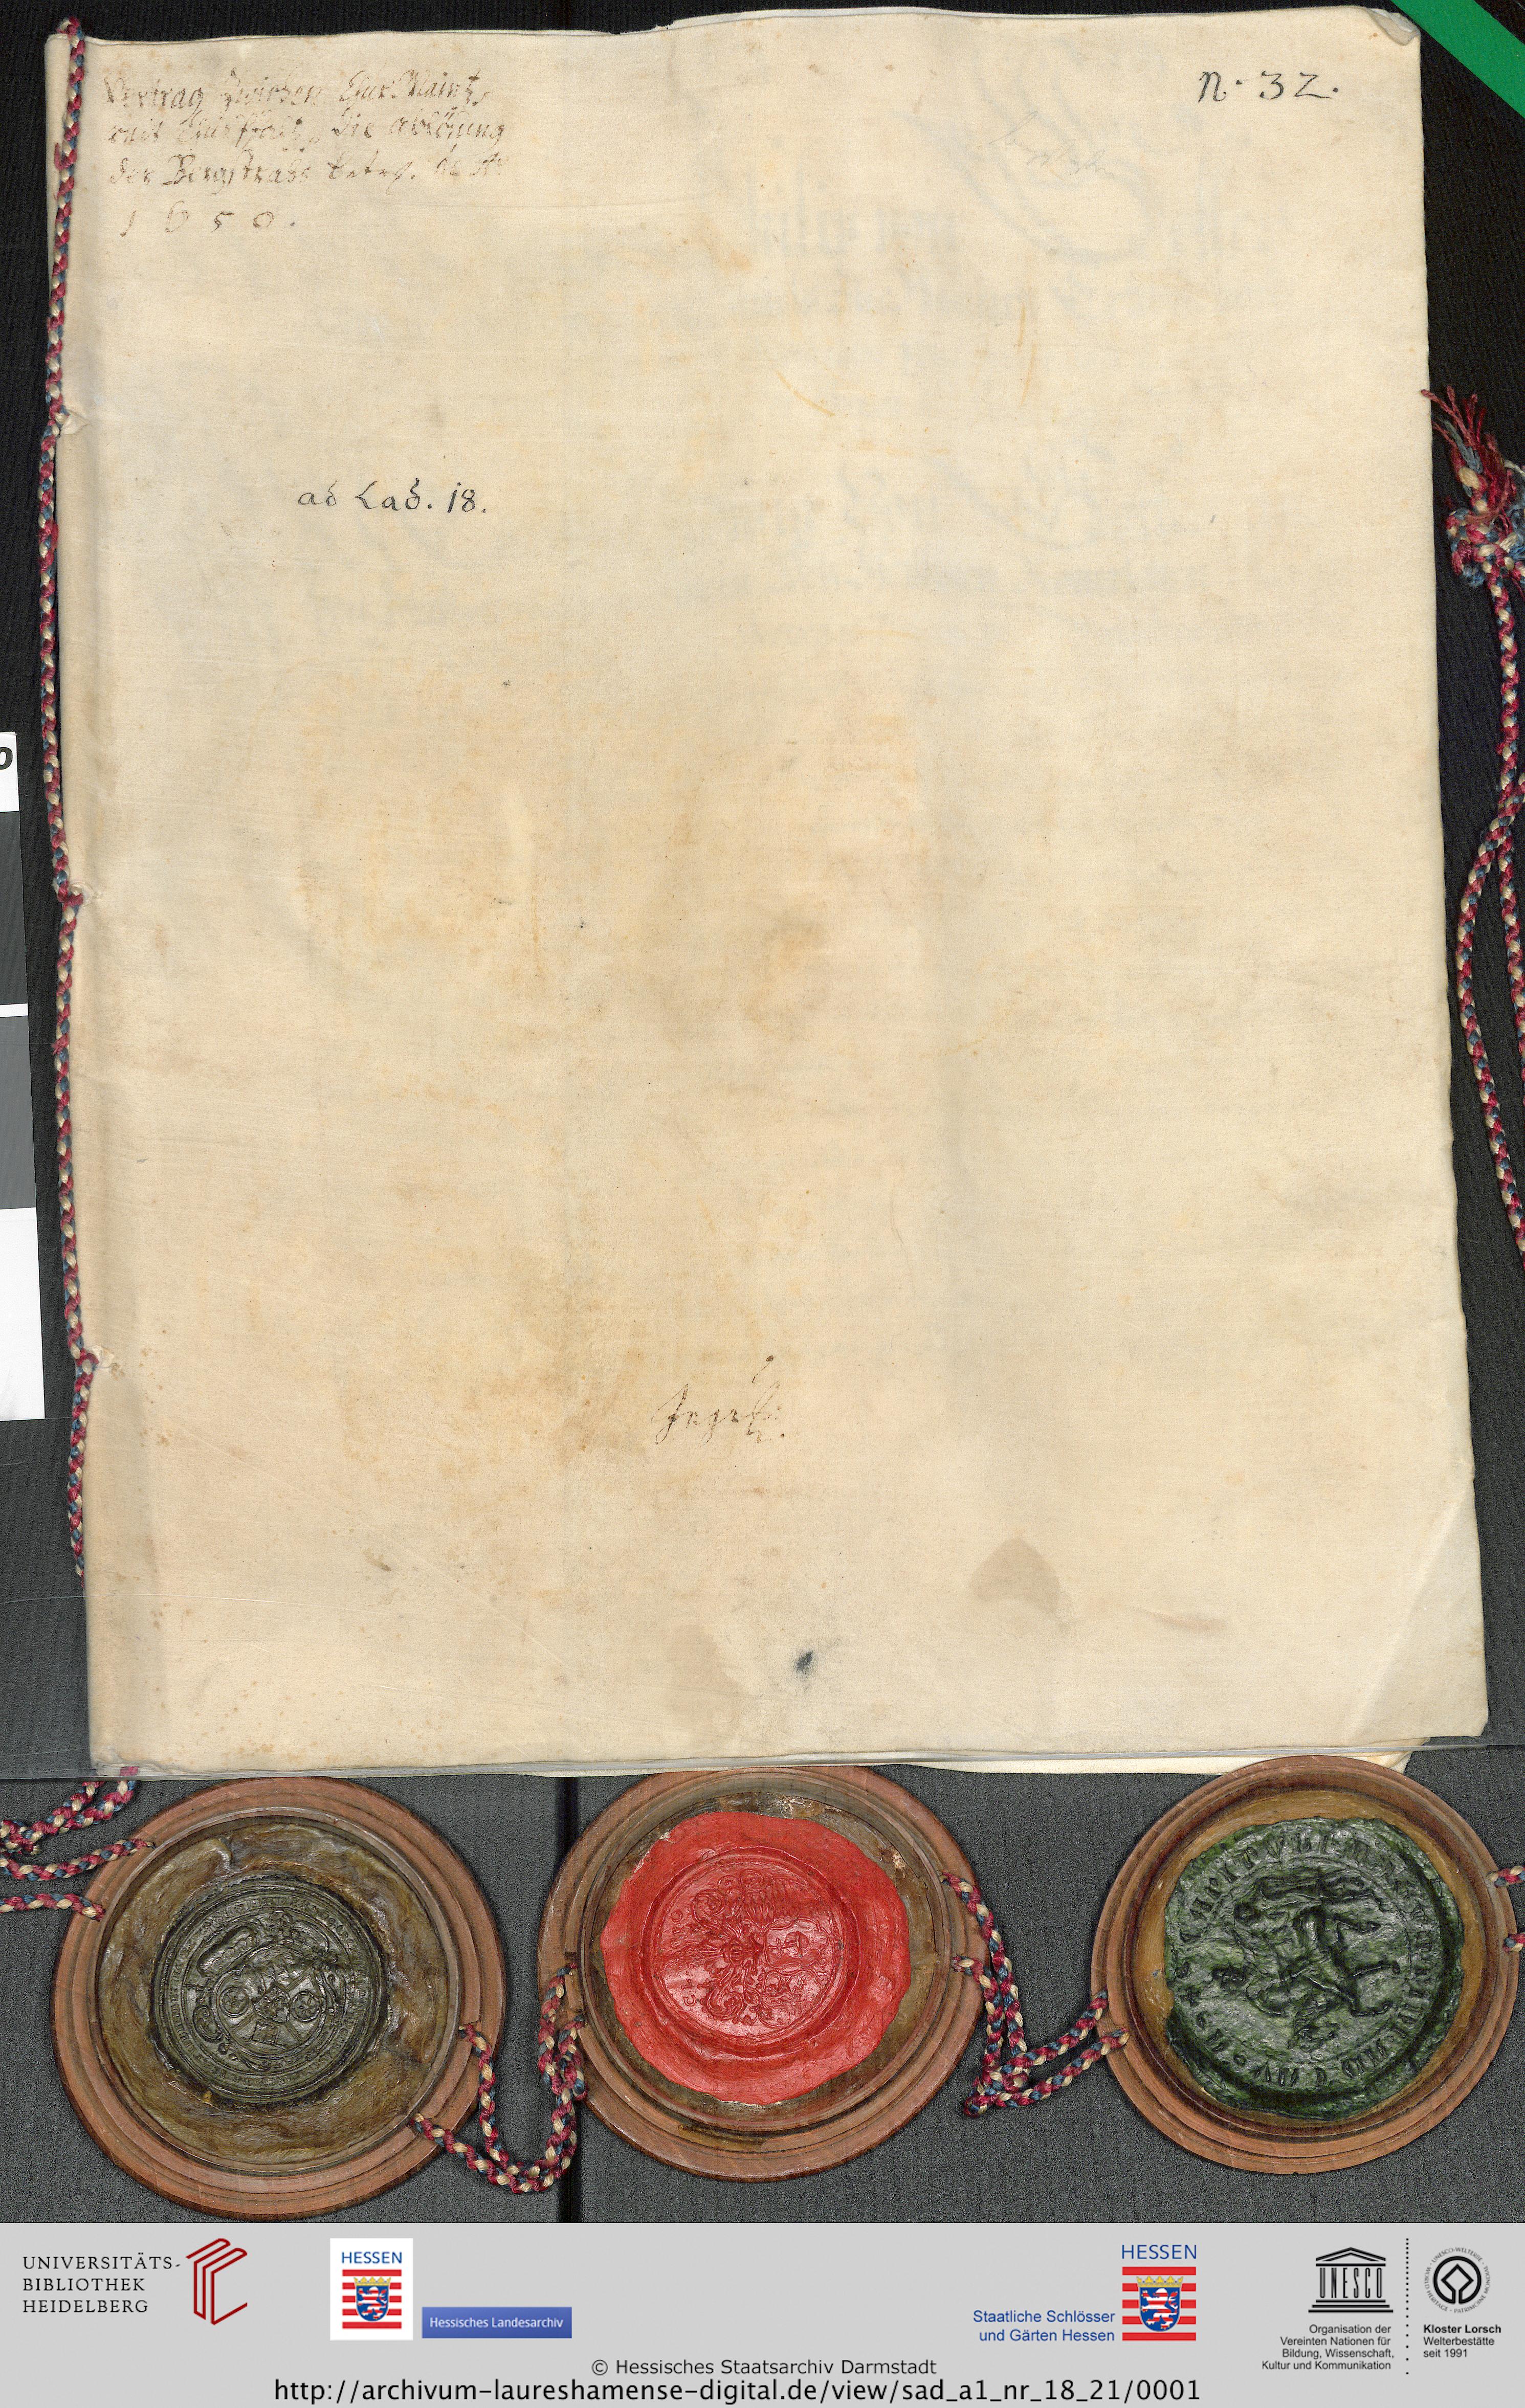 Vertrag Zwischen Chur Maintz,
und Churpfaltz, die ablößung
der Bergstraß betrf. de Aō
1650.
N. 32.
ad Lad. 18.
HESSEN
HESSEN
UNIVERSITÄTS-
BIBLIOTHEK
HEIDELBERG
Hessisches Landesarchiv
Staatliche Schlösser
und Gärten Hessen
UNESCO
Organisation der
Vereinten Nationen für
Bildung, Wissenschaft,
Kultur und Kommunikation
Kloster Lorsch
Welterbestätte
seit 1991
© Hessisches Staatsarchiv Darmstadt
http://archivum-laureshamense-digital.de/view/sad_a1_nr_18_21/0001